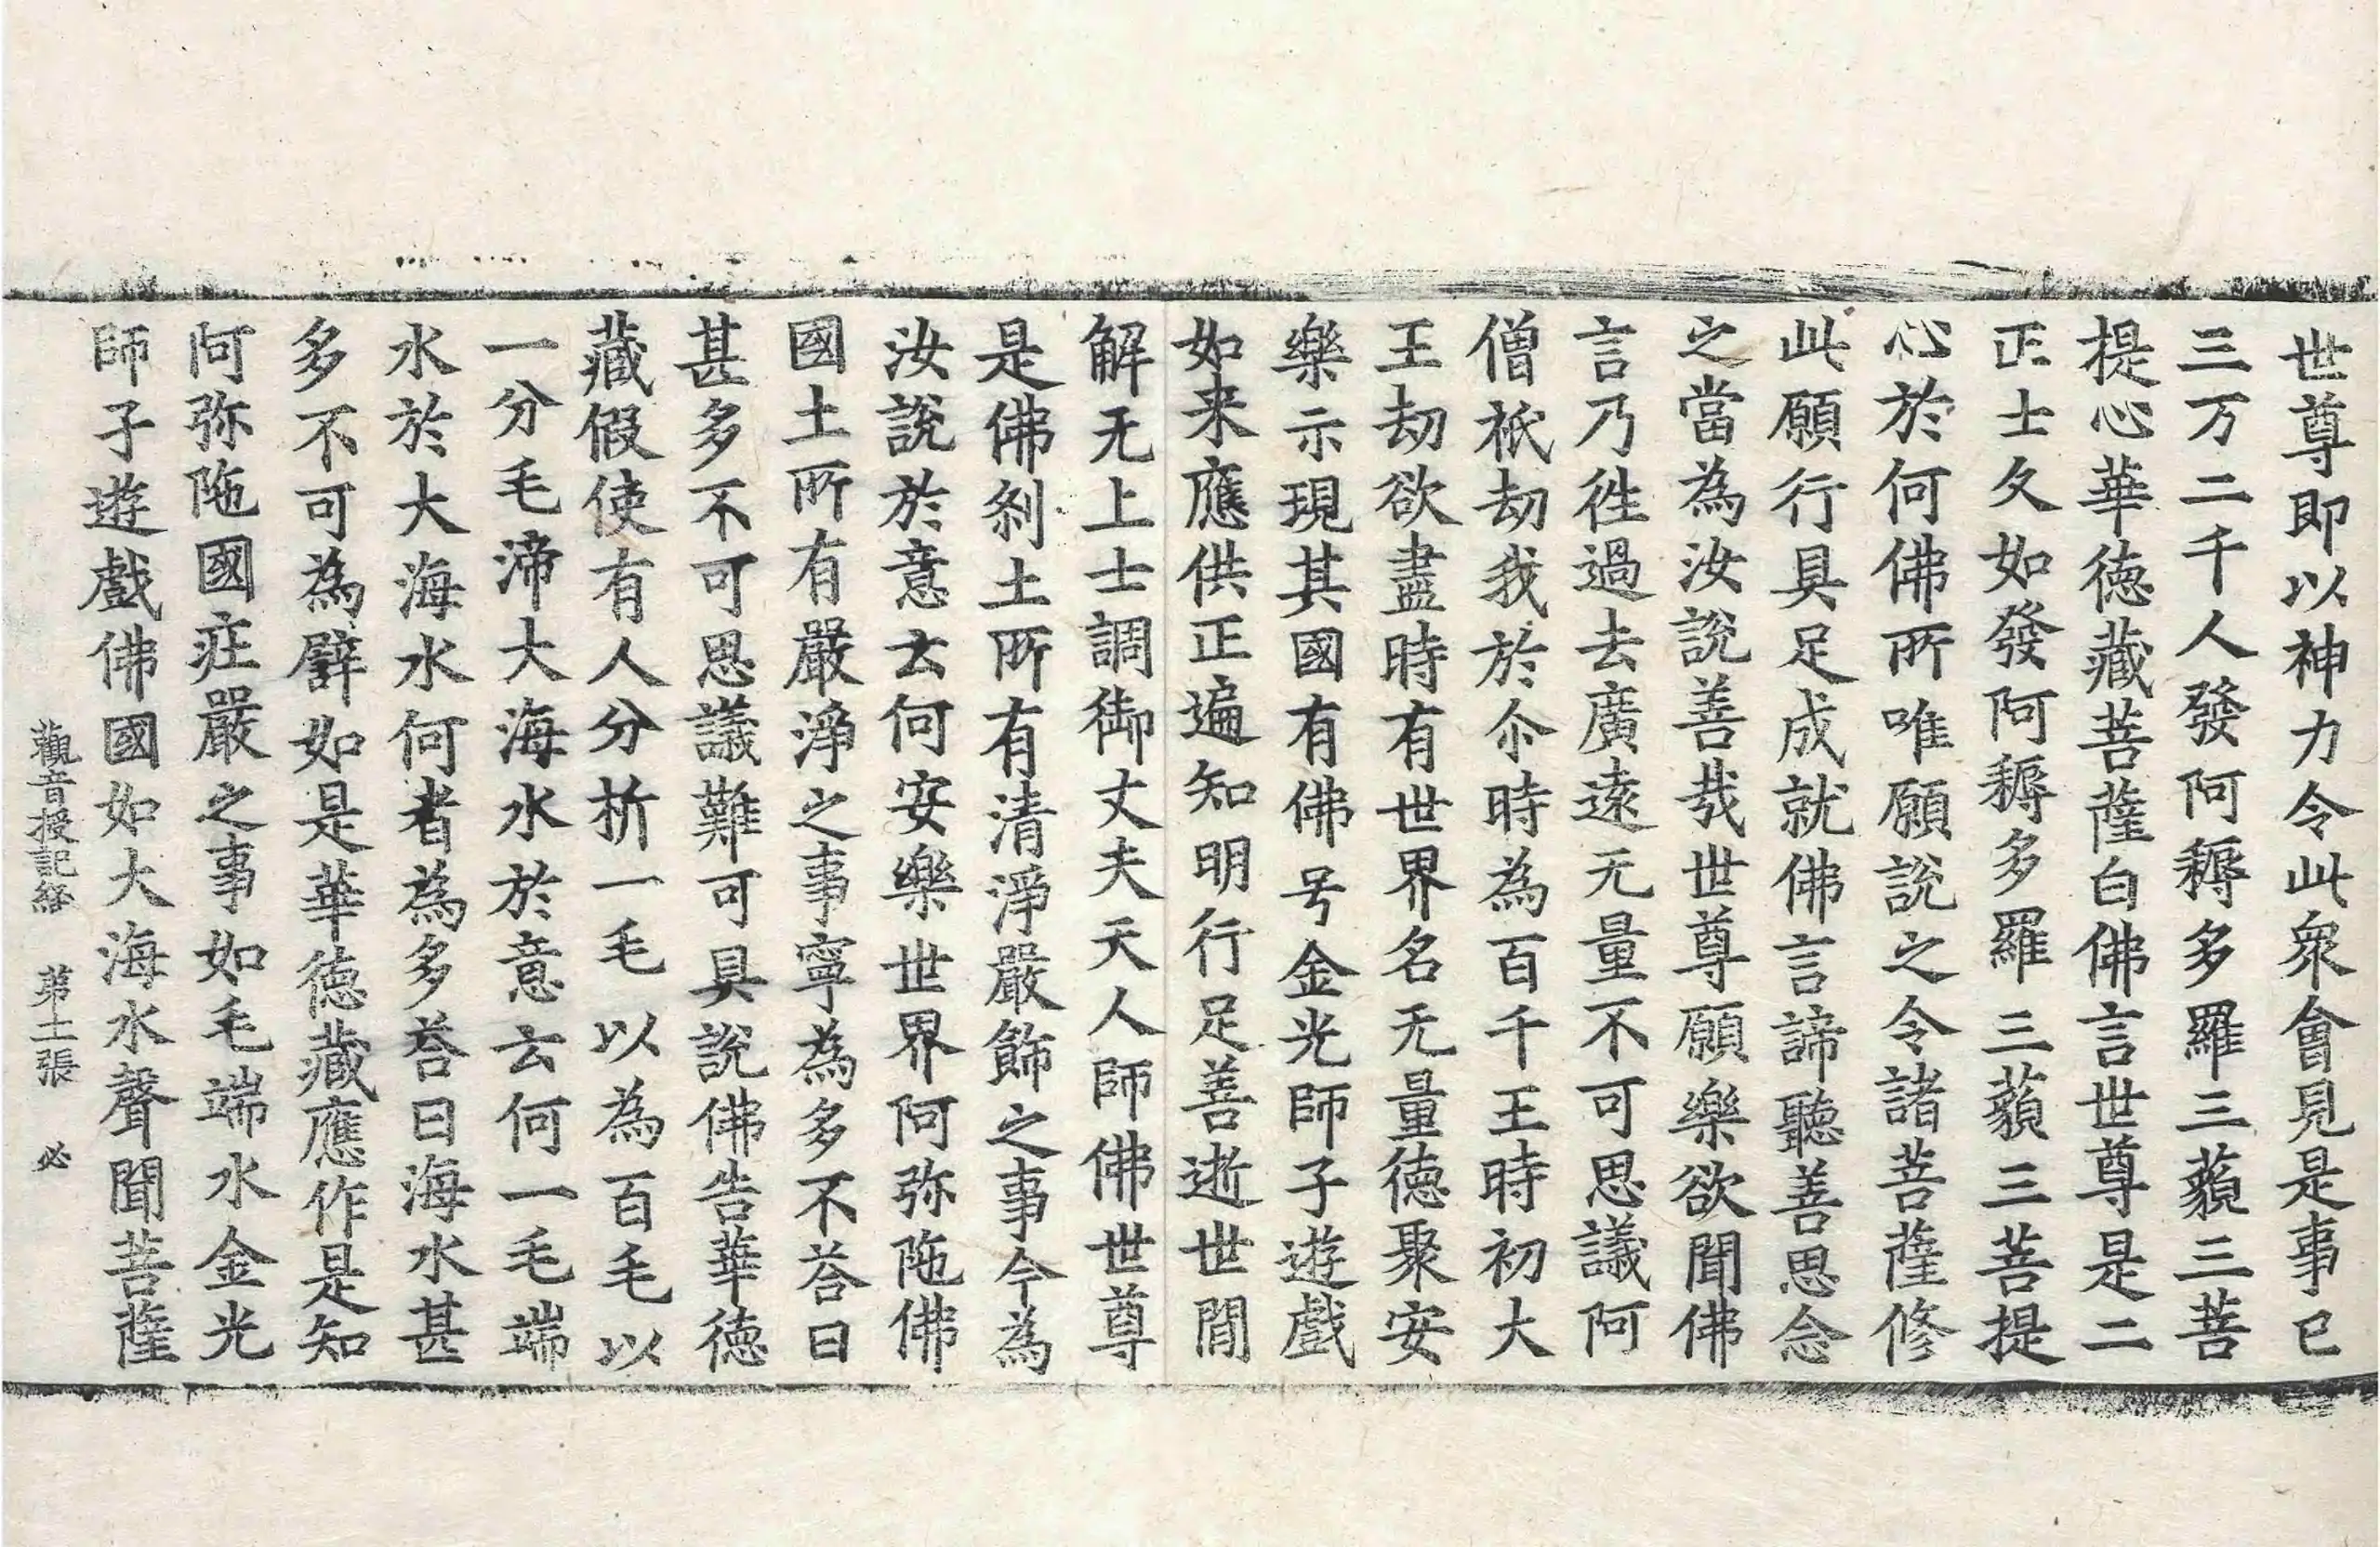 世尊即以神力令此衆會見是事已
三万二千人發阿耨多羅三藐三菩
提心華德藏菩薩白佛言世尊是二
正士久如發阿耨多羅三藐三菩提
心於何佛所唯願說之令諸菩薩修
此願行具足成就佛言諦聽善思念
之當為汝說善哉世尊願樂欲聞佛
言乃徃過去廣遠无量不可思議阿
僧祇劫我於尒時為百千王時初大
王劫欲盡時有世界名无量德聚安
樂示現其國有佛号金光師子遊戲
如来應供正遍知明行足善逝世間
解无上士調御丈夫天人師佛世尊
是佛刹土所有清淨嚴飾之事今為
汝說於意云何安樂世界阿弥陁佛
國土所有嚴淨之事寧為多不荅曰
甚多不可思議難可具說佛告華德
藏假使有人分析一毛以為百毛以
一分毛渧大海水於意云何一毛端
水於大海水何者為多荅曰海水甚
多不可為譬如是華德藏應作是知
阿弥陁國疘嚴之事如毛端水金光
師子遊戲佛國如大海水聲聞菩薩
觀音授記経 第十一張 必